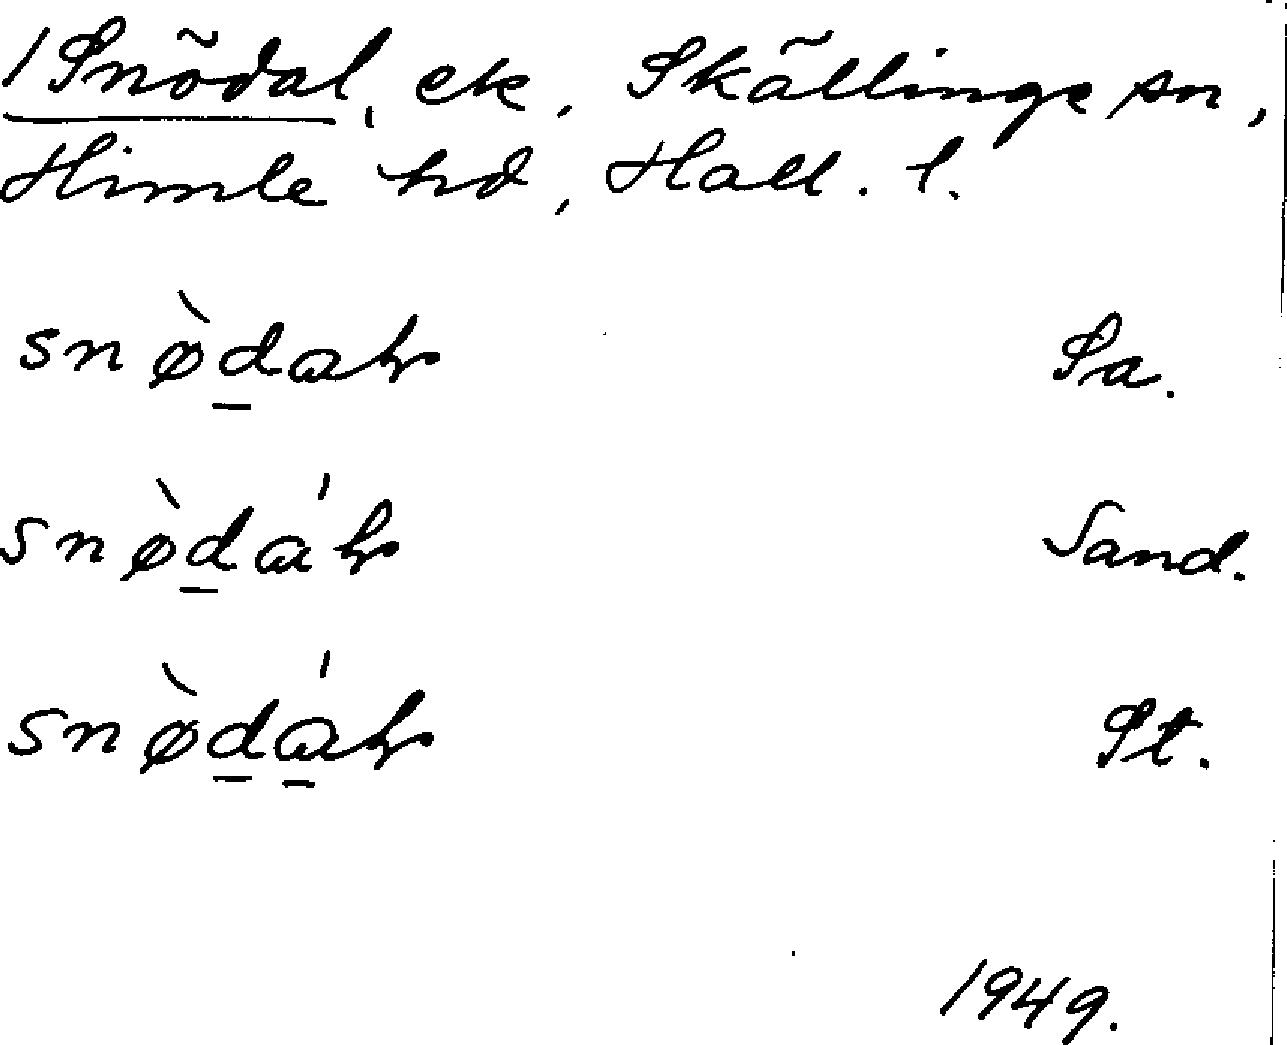 1 Snödal, ek, Skällinge sn,
Himle hd, Hall. l.
snø̀d̲ɑɫ Sa.
snø̀d̲ɑ́ɫ Sand.
snø̀d̲ɑ̲́ɫ St.
1949.